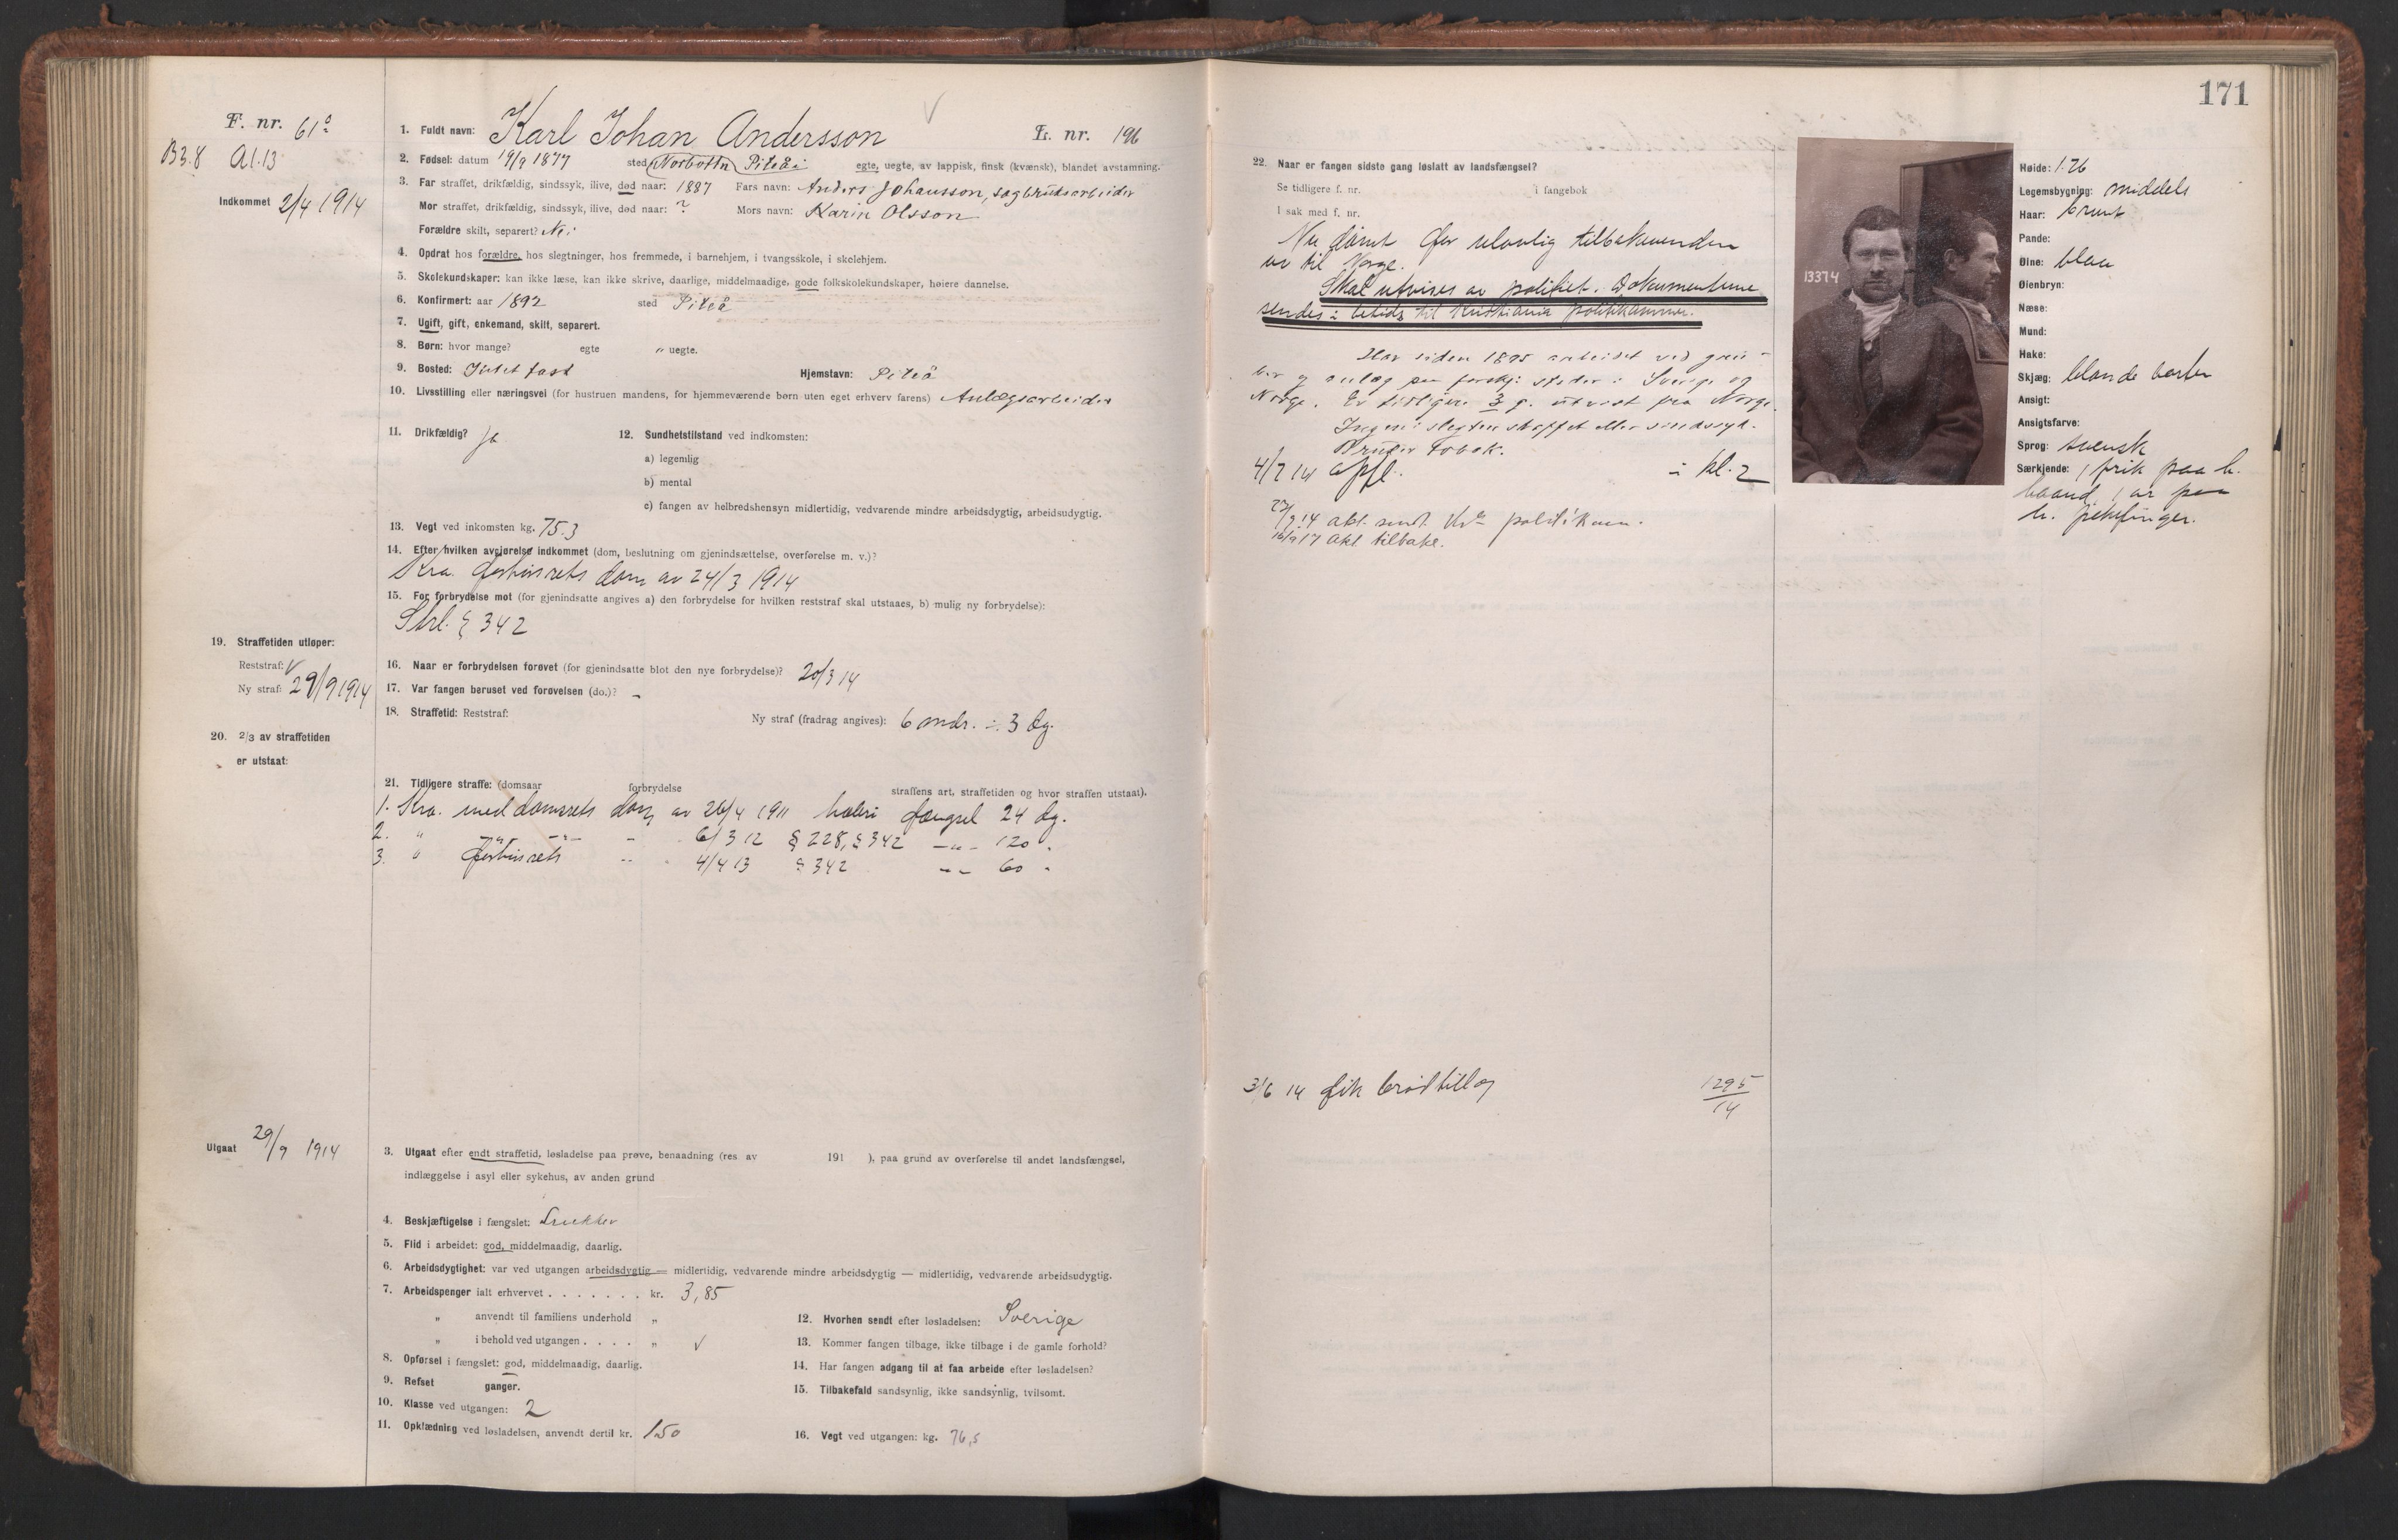 F. nr. 61a
B3.8 A1.13
Indkommet 2/4 1914
1. Fuldt navn: Karl Johan Andersson L. nr. 196
2. Fødsel: datum 19/9 1877 sted (Norbottn) Piteå egte, uegte, av lappisk, finsk (kvænsk), blandet avstamning.
3. Far straffet, drikfældig, sindssyk, ilive, død naar: 1887 Fars navn: Anders Johansson, sagbruksarbeider
Mor straffet, drikfældig, sindssyk, ilive, død naar: ? Mors navn: Karin Olsson
Forældre skilt, separert? Nei
4. Opdrat hos forældre, hos slegtninger, hos fremmede, i barnehjem, i tvangsskole, i skolehjem.
5. Skolekundskaper: kan ikke læse, kan ikke skrive, daarlige, middelmaadige, gode folkskolekundskaper, høiere dannelse.
6. Konfirmert: aar 1892 sted Piteå
7. Ugift, gift, enkemand, skilt, separert.
8. Børn: hvor mange? egte " uegte.
9. Bosted: Intet fast Hjemstavn: Piteå
10. Livsstilling eller næringsvei (for hustruen mandens, for hjemmeværende børn uten eget erhverv farens) Anlægsarbeider
11. Drikfældig? ja 12. Sundhetstilstand ved indkomsten:
a) legemlig
b) mental
c) fangen av helbredshensyn midlertidig, vedvarende mindre arbeidsdygtig, arbeidsudygtig.
13. Vegt ved inkomsten kg. 75.3
14. Efter hvilken avgjørelse indkommet (dom, beslutning om gjenindsættelse, overførelse m. v.)?
Kra. forhørsrets dom av 24/3 1914
15. For forbrydelse mot (for gjenindsatte angives a) den forbrydelse for hvilken reststraf skal utstaaes, b) mulig ny forbrydelse):
Strl. § 342
19. Straffetiden utløper:
Reststraf: √
Ny straf: 29/9 1914
16. Naar er forbrydelsen forøvet (for gjenindsatte blot den nye forbrydelse)? 20/3 14
17. Var fangen beruset ved forøvelsen (do.)? -
18. Straffetid: Reststraf: Ny straf (fradrag angives): 6 mdr. ÷ 3 dg.
20. 2/3 av straffetiden
er utstaat:
21. Tidligere straffe: (domsaar forbrydelse straffens art, straffetiden og hvor straffen utstaat).
1. Kra. meddomsrets dom av 26/4 1911 hæleri fængsel 24 dg.
2. " -"- -"- - 6/3 12 § 228, § 342 -"- 120 "
3. " forhørsrets -- 4/4 13 § 342 -"- 60 "
Utgaat 29/9 1914
3. Utgaat efter endt straffetid, løsladelse paa prøve, benaadning (res. av 191 ), paa grund av overførelse til andet landsfængsel,
indlæggelse i asyl eller sykehus, av anden grund
4. Beskjæftigelse i fængslet:
5. Flid i arbeidet: god, middelmaadig, daarlig.
6. Arbeidsdygtighet: var ved utgangen arbeidsdygtig — midlertidig, vedvarende mindre arbeidsdygtig — midlertidig, vedvarende arbeidsudygtig.
7. Arbeidspenger ialt erhvervet . . . . . . . kr. 3,85
" anvendt til familiens underhold "
" i behold ved utgangen . . . . " √
8. Opførsel i fængslet: god, middelmaadig, daarlig.
9. Refset ganger.
10. Klasse ved utgangen: 2
11. Opklædning ved løsladelsen, anvendt dertil kr. 1.50
12. Hvorhen sendt efter løsladelsen: Sverige
13. Kommer fangen tilbage, ikke tilbage i de gamle forhold?
14. Har fangen adgang til at faa arbeide efter løsladelsen?
15. Tilbakefald sandsynlig, ikke sandsynlig, tvilsomt.
16. Vegt ved utgangen: kg. 76,5
171
22. Naar er fangen sidste gang løslatt av landsfængsel?
Se tidligere f. nr. i fangebok
I sak med f. nr.
Nu dømt for ulovlig tilbakevenden
til Norge.
Skal utvises av politiet. Dokumenterne
sendes i betids til Kristiania politikammer.
Har siden 1895 arbeidet ved gru-
ber og anlæg paa forskj. steder i Sverige og
Norge. Er tidligere 3 g. utvist fra Norge.
Ingen i slegten straffet eller sindssyk.
Bruger tobak.
4/7 14 opfl. i kl. 2
23/9 14 akt. sendt Kra politikam.
16/9 17 akt tilbake.
3/6 14 fik brødtillæg 1295/14
13374
Høide: 1.76
Legemsbygning: middels
Haar: brunt
Pande:
Øine: blaa
Øienbryn:
Næse:
Mund:
Hake:
Skjæg: blonde barter
Ansigt:
Ansigtsfarve:
Sprog: svensk
Særkjende: 1 prik paa h.
haand, 1 ar paa
h. pekefinger.